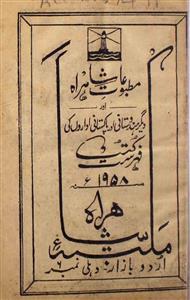 مطبوعات شاہراہ
اور
دیگر ہندوستانی اور پاکستانی اداروں کی
فہرست کتب
سنہ ۱۹۵۸ء
مکتبہ شاہراہ
اردو بازار۔ دہلی نمبر ۶